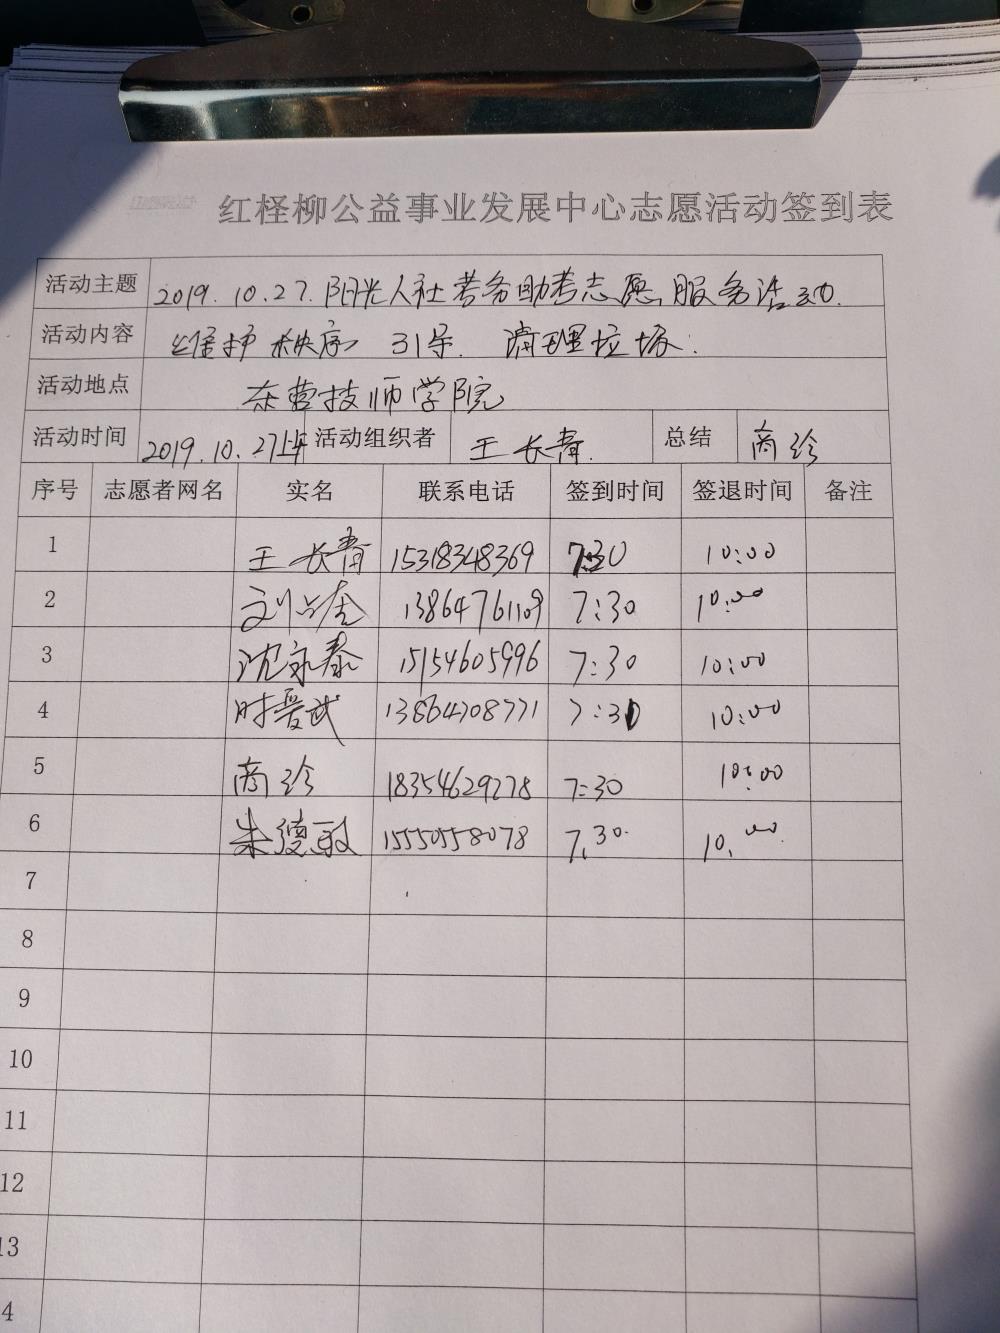 红柽柳公益事业发展中心志愿活动签到表
活动主题 2019.10.27.阳光人社考务助考志愿服务活动.
活动内容 维护秩序 引导. 清理垃圾.
活动地点 东营技师学院
活动时间 2019.10.27上午 活动组织者 王长青. 总结 商珍
序号 志愿者网名 实名 联系电话 签到时间 签退时间 备注
1 王长青 15318348369 7:30 10:00
2 13864761109 7:30 10:00
3 沈永泰 15154605996 7:30 10:00
4 时晋武 13864708771 7:30 10:00
5 商珍 18354629278 7:30 10:00
6 朱德敏 15550558078 7.30 10.00
7
8
9
10
11
12
13
4